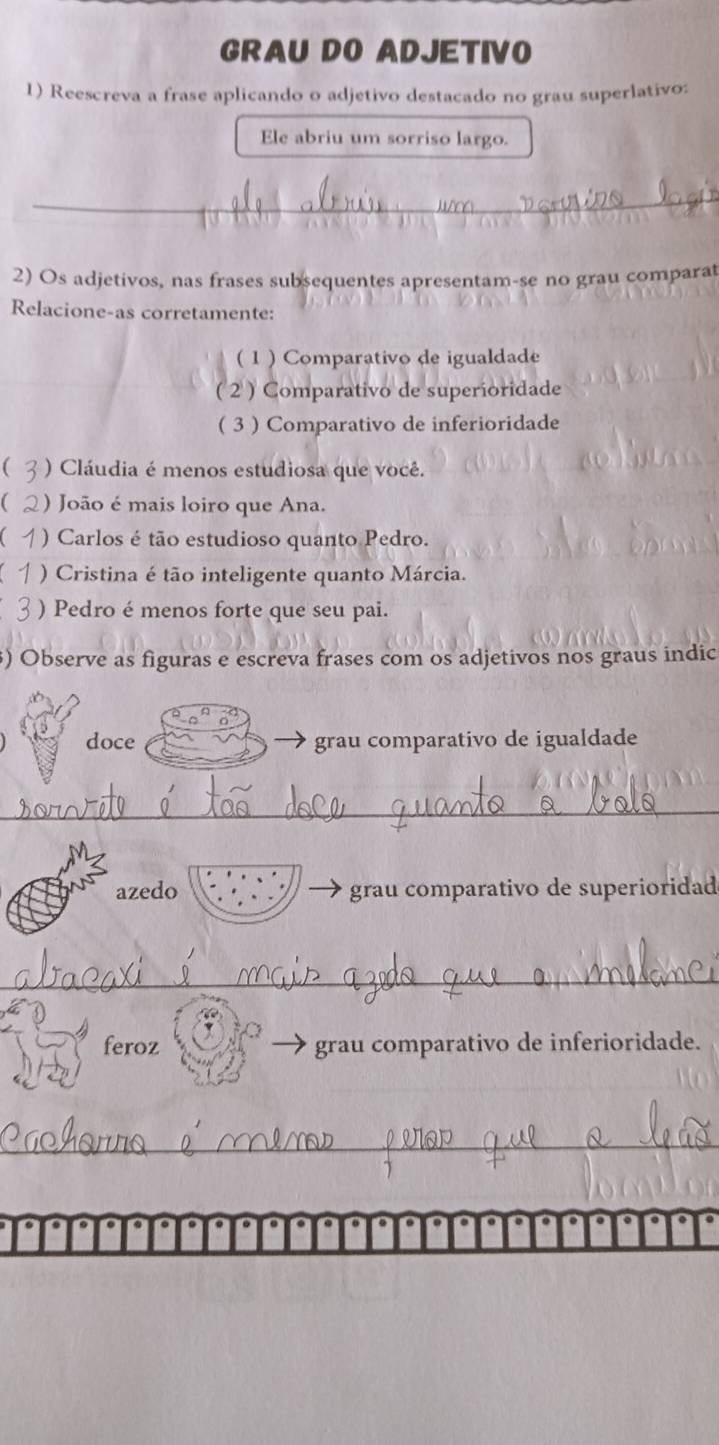 GRAU DO ADJETIVO
1) Reescreva a frase aplicando o adjetivo destacado no grau superlativo:
Ele abriu um sorriso largo.
ele abriu um
2) Os adjetivos, nas frases subsequentes apresentam-se no grau comparat
Relacione-as corretamente:
( 1 ) Comparativo de igualdade
( 2 ) Comparativo de superioridade
( 3 ) Comparativo de inferioridade
( 3 ) Cláudia é menos estudiosa que você.
( 2 ) João é mais loiro que Ana.
( 1 ) Carlos é tão estudioso quanto Pedro.
( 1 ) Cristina é tão inteligente quanto Márcia.
3 ) Pedro é menos forte que seu pai.
3) Observe as figuras e escreva frases com os adjetivos nos graus indic
) doce → grau comparativo de igualdade
sorvete é tão doce quanto o bolo
azedo → grau comparativo de superioridad
abacaxi é mais azedo que a melanci
feroz → grau comparativo de inferioridade.
cachorro é menos feroz que o leão